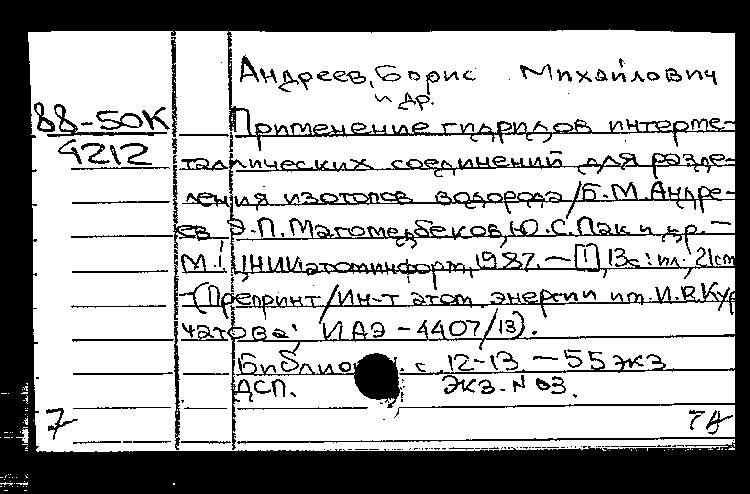 Андреев, Борис Михайлович
и др.
88-50К
4212
Применение гидридов интерме-
таллических соединений для разде-
ления изотопов водорода / Б.М. Андре-
ев, Э.П. Магомедбеков, Ю.С. Пак и др. -
М.: ЦНИИатоминформ, 1987. - [1], 13с: ил; 21см
- (Препринт / Ин-т атом. энергии им. И.В. Кур
чатова; ИАЭ - 4407/13).
с. 12-13. - 55 экз
ДСП. Экз. N 03.
7